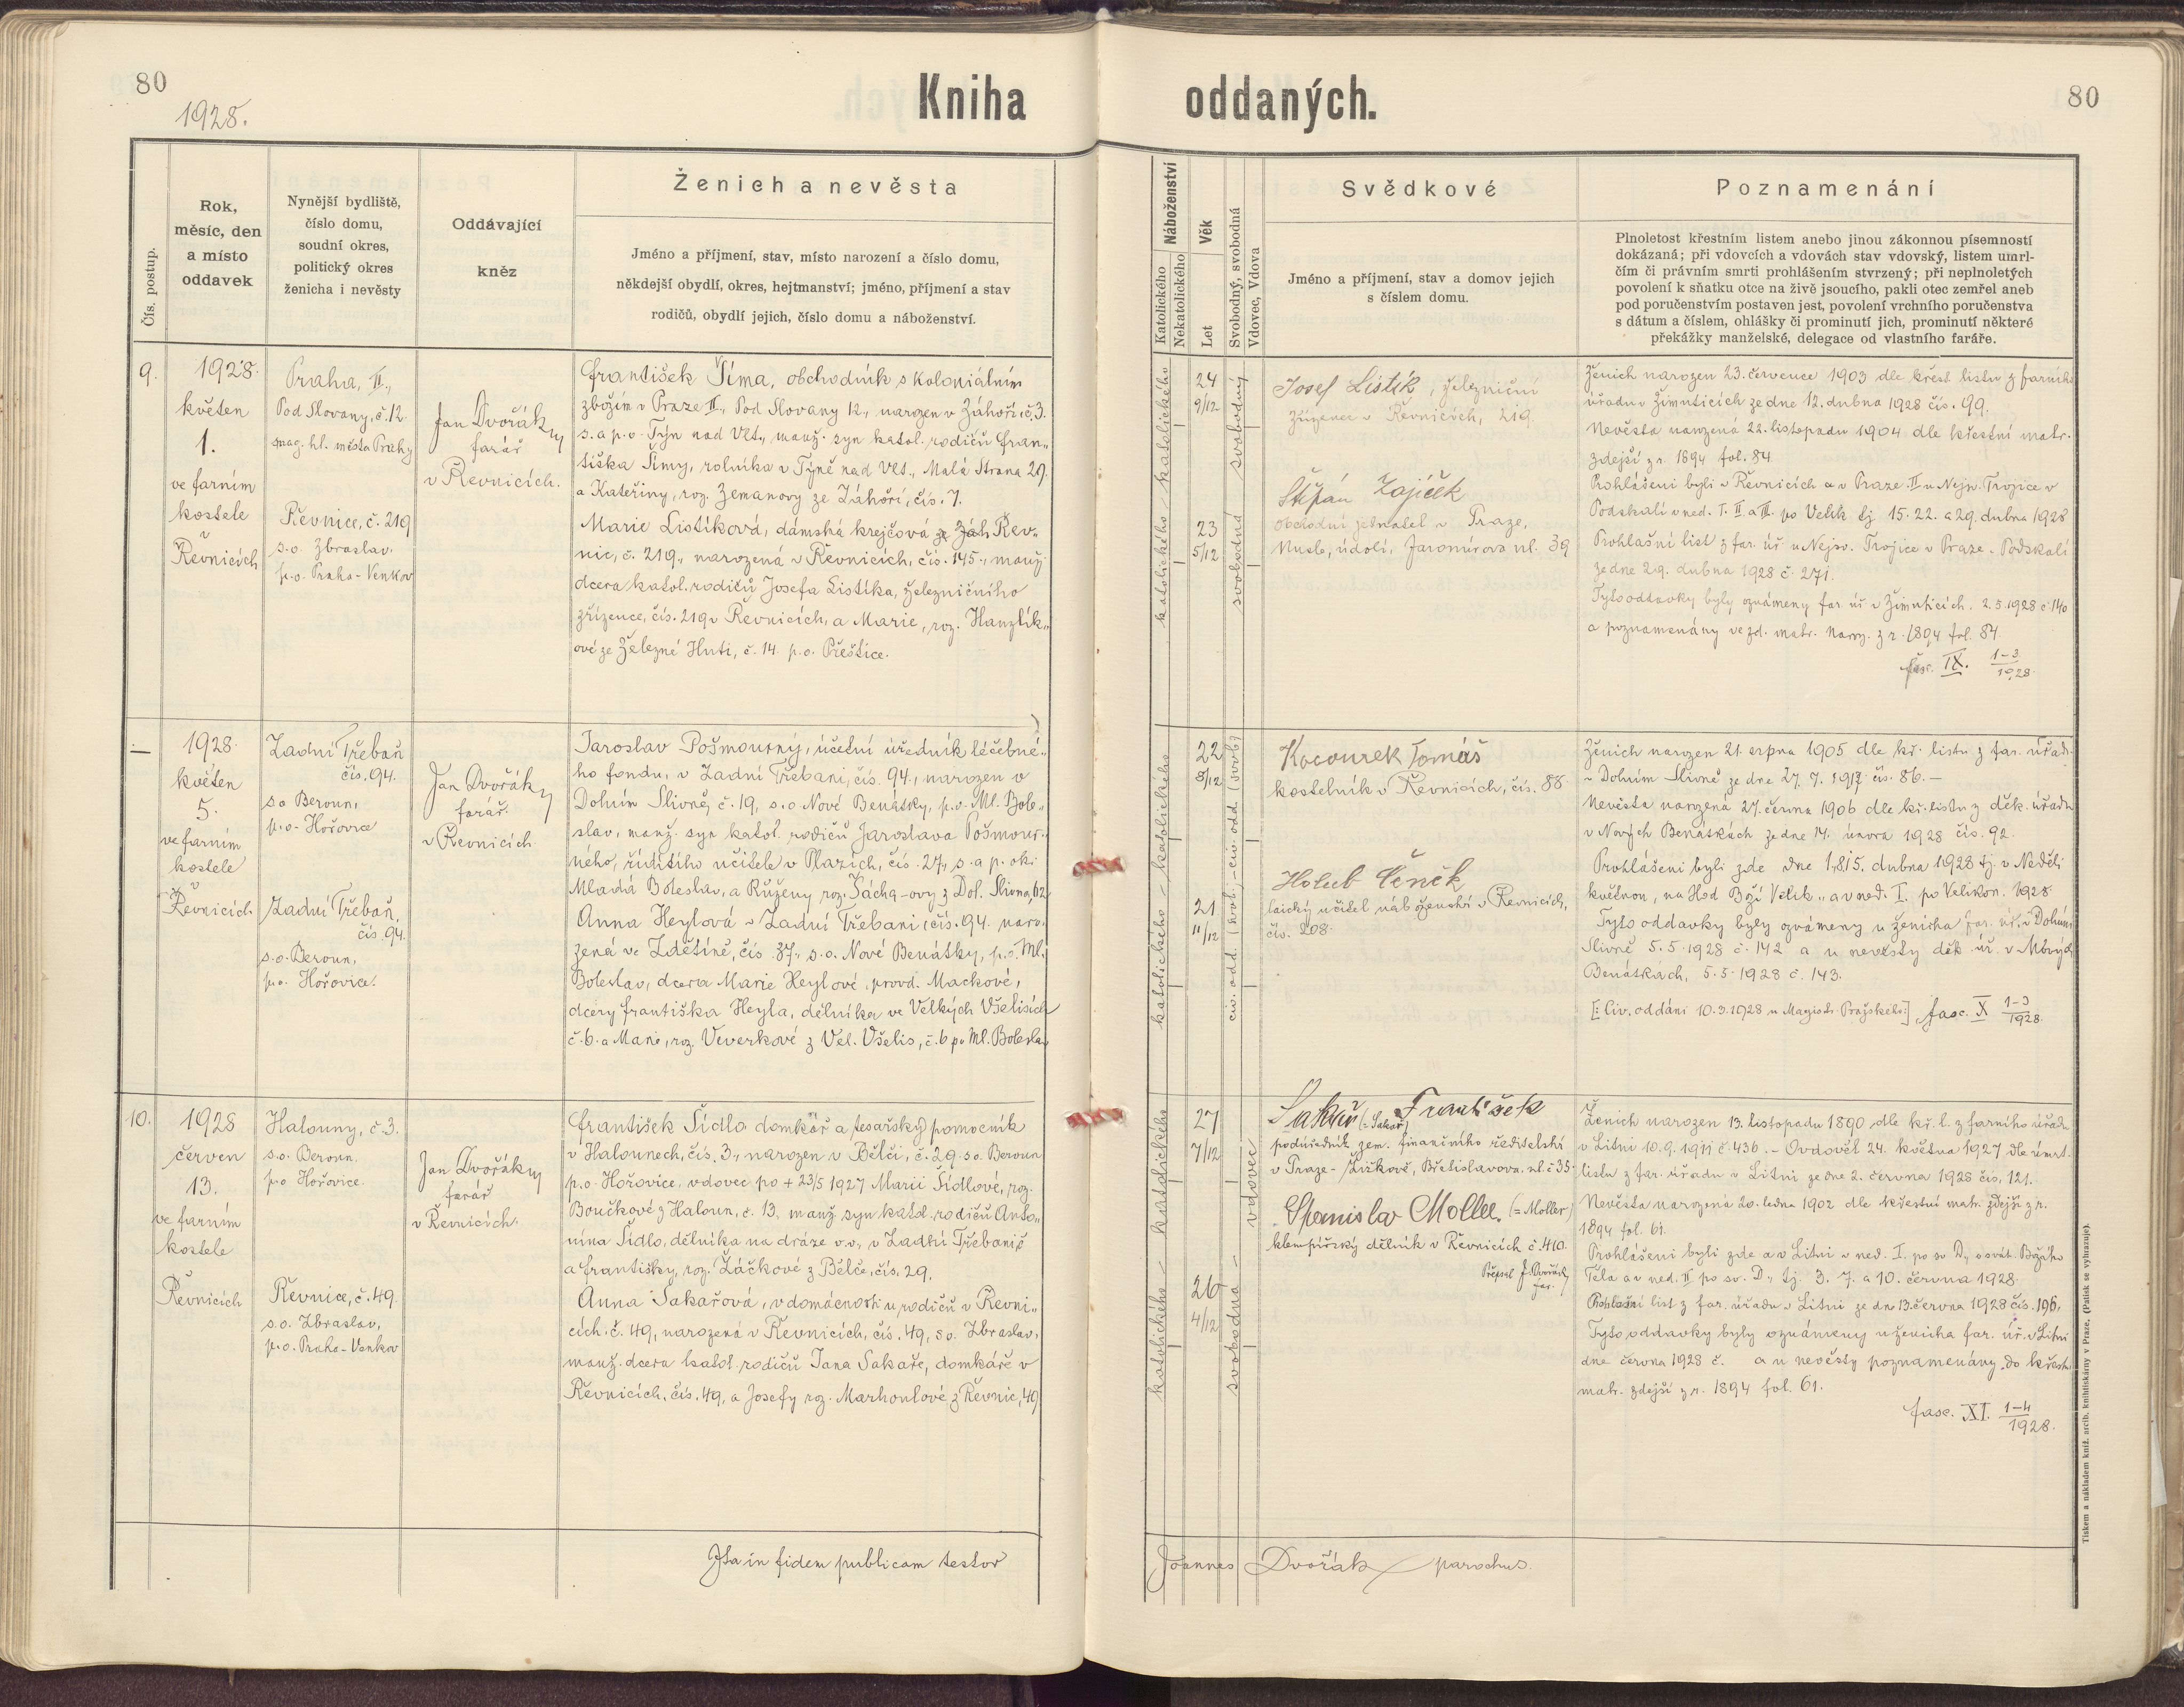 80
1928.
Kniha oddaných.
80
Čís. postup.
Rok,
měsíc, den
a místo
oddavek
Nynější bydliště,
číslo domu,
soudní okres,
politický okres
ženicha i nevěsty
Oddávající
kněz
Ženich a nevěsta
Jméno a příjmení, stav, místo narození a číslo domu,
někdejší obydlí, okres, hejtmanství; jméno, příjmení a stav
rodičů, obydlí jejich, číslo domu a náboženství.
Náboženství
Katolického
Nekatolického
Věk
Let
Svobodný, svobodná
Vdovec, Vdova
Svědkové
Jméno a příjmení, stav a domov jejich
s číslem domu.
Poznamenání
Plnoletost křestním listem anebo jinou zákonnou písemností
dokázaná; při vdovcích a vdovách stav vdovský, listem umrl-
čím či právním smrti prohlášením stvrzený; při neplnoletých
povolení k sňatku otce na živě jsoucího, pakli otec zemřel aneb
pod poručenstvím postaven jest, povolení vrchního poručenstva
s dátum a číslem, ohlášky či prominutí jich, prominutí některé
překážky manželské, delegace od vlastního faráře.
9.
1928.
květen
1.
ve farním
kostele
v
Řevnicích
Praha, II.,
Pod Slovany, č. 12.
mag. hl. města Prahy
Řevnice, č. 219
s.o. Zbraslav.
p.o. Praha-Venkov
Jan Dvořák
farář
v Řevnicích.
František Šíma, obchodník s koloniálním
zbožím v Praze II., Pod Slovany 12., narozen v Záhoří, č. 3.
s. a p. o. Týn nad Vlt., manž. syn katol. rodičů Fran„
tiška Šímy, rolníka v Týně nad Vlt., Malá Strana 29.
a Kateřiny, roz. Zemanovy ze Záhoří, čís. 7.
Marie Listíková, dámská krejčová ze Záh Řev„
nic, č. 219., narozená v Řevnicích, čís. 145., manž.
dcera katol. rodičů Josefa Listíka, železničního
zřízence, čís. 219 v Řevnicích, a Marie, roz. Hanzlík„
ové ze Železné Huti, č. 14. p.o. Přeštice.
katolického - katolického
24
9/12
23
5/12
svobodný
svobodná
Josef Listík, železniční
zřízenec v Řevnicích, 219.
Štěpán Zajíček
obchodní jednatel v Praze,
Nusle, údolí, Jaromírova ul. 39
Ženich narozen 23. července 1903 dle křest. listu z farního
úřadu v Žimuticích ze dne 12. dubna 1928 čís. 99.
Nevěsta narozená 22. listopadu 1904 dle křestní matr.
zdejší z r. 1894 fol. 84.
Prohlášeni byli v Řevnicích a v Praze II u Nejsv. Trojice v
Podskalí v ned. I. II. a III. po Velik. tj. 15. 22. a 29. dubna 1928
Prohlašní list z far. úř. u Nejsv. Trojice v Praze - Podskalí
ze dne 29. dubna 1928 č. 271.
Tyto oddavky byly oznámeny far. úř. v Žimuticích. 2.5.1928 č. 140
a poznamenány ve zd. matr. naroz. z r. 1894 fol. 84.
fasc. IX. 1-3/1928.
—
1928.
květen
5.
ve farním
kostele
v
Řevnicích
Zadní Třebaň
čís. 94.
s.o. Beroun,
p.o. Hořovice
Zadní Třebaň,
čís. 94.
s.o. Beroun,
p.o. Hořovice.
Jan Dvořák
farář.
v Řevnicích.
Jaroslav Pošmourný, účetní úředník léčebné„
ho fondu, v Zadní Třebani, čís. 94., narozen v
Dolním Slivně, č. 19, s.o. Nové Benátky, p.o. Ml. Bole„
slav, manž. syn katol. rodičů Jaroslava Pošmour„
ného, řídícího učitele v Plazích, čís. 27., s. a p. ok.
Mladá Boleslav, a Růženy roz. Šácha-ovy z Dol. Slivna, 62
Anna Heylová v Zadní Třebani, čís. 94. naro„
zená ve Zdětíně, čís. 37., s.o. Nové Benátky, p.o. Ml.
Boleslav, dcera Marie Heylové, provd. Mackové,
dcery Františka Heyla, dělníka ve Velkých Všelisích
č. 6. a Marie, roz. Veverkové z Vel. Všelis, č. 6 po. Ml. Boleslav
katolického - katolického
22
8/12
21
11/12
civ. odd. (svob.) - civ. odd. (svob.)
Kocourek Tomáš
kostelník v Řevnicích, čís. 88.
Holub Čeněk
laický učitel náboženství v Řevnicích,
čís. 208.
Ženich narozen 21. srpna 1905 dle kř. listu z far. úřadu
v Dolním Slivně ze dne 27. 7. 1917 čís. 86. —
Nevěsta narozená 27. června 1906 dle kř. listu z děk. úřadu
v Nových Benátkách ze dne 14. února 1928 čís. 92.
Prohlášeni byli zde dne 1., 8. i 15. dubna 1928 tj. v Neděli
květnou, na Hod Boží Velik., a v ned. I. po Velikon. 1928
Tyto oddavky byly oznámeny u ženicha far. úř. v Dolním
Slivně 5.5.1928 č. 142 a u nevěsty děk. úř. v Nových
Benátkách, 5.5.1928 č. 143.
[: Civ. oddáni 10.3.1928 u Magistr. Pražského:] fasc. X 1-3/1928.
10.
1928
červen
13.
ve farním
kostele
v
Řevnicích
Halouny, č. 3.
s.o. Beroun,
p.o. Hořovice.
Řevnice, č. 49.
s.o. Zbraslav,
p.o. Praha-Venkov
Jan Dvořák
farář
v Řevnicích.
František Šídlo domkář a tesařský pomocník
v Halounech, čís. 3., narozen v Bělči, č. 29. s.o. Beroun
p.o. Hořovice, vdovec po + 23/5 1927 Marii Šídlové, roz.
Boučkové z Haloun, č. 13, manž. syn katol. rodičů Anto„
nína Šídlo, dělníka na dráze v.v., v Zadní Třebani č
a Františky, roz. Žáčkové z Bělče, čís. 29.
Anna Sakařová, v domácnosti u rodičů v Řevni„
cích. č. 49, narozená v Řevnicích, čís. 49, s.o. Zbraslav,
manž. dcera katol. rodičů Jana Sakaře, domkáře v
Řevnicích, čís. 49, a Josefy roz. Marhoulové z Řevnic, 49
katolického - katolického
27
7/12
26
4/12
vdovec
svobodná
Sakař (= Sakař) František
podúředník zem. finančního ředitelství
v Praze - Žižkově, Břetislavova ul. č. 35.
Stanislav Moller. (= Moller)
klempířský dělník v Řevnicích č. 410.
Přepsal J. Dvořák
far.
Ženich narozen 13. listopadu 1890 dle kř. l. z farního úřadu
v Litni 10.9.1911 č. 436. - Ovdověl 24. května 1927 dle úmrt.
listu z far. úřadu v Litni ze dne 2. června 1928 čís. 121.
Nevěsta narozená 20. ledna 1902 dle křestní matr. zdejší z r.
1894 fol. 61.
Prohlášeni byli zde a v Litni v ned. I. po sv. D., o svát. Božího
Těla a v ned. II po sv. D., tj. 3. 7. a 10. června 1928.
Prohlašní list z far. úřadu v Litni ze dne 13. června 1928 čís. 196,
Tyto oddavky byly oznámeny u ženicha far. úř. v Litni
dne června 1928 č. a u nevěsty poznamenány do křestní
matr. zdejší z r. 1894 fol. 61.
fasc. XI. 1-4/1928.
Ita in fidem publicam testor
Joannes Dvořák parochus.
Tiskem a nákladem kníž. arcib. knihtiskárny v Praze, (Patisk se vyhrazuje).